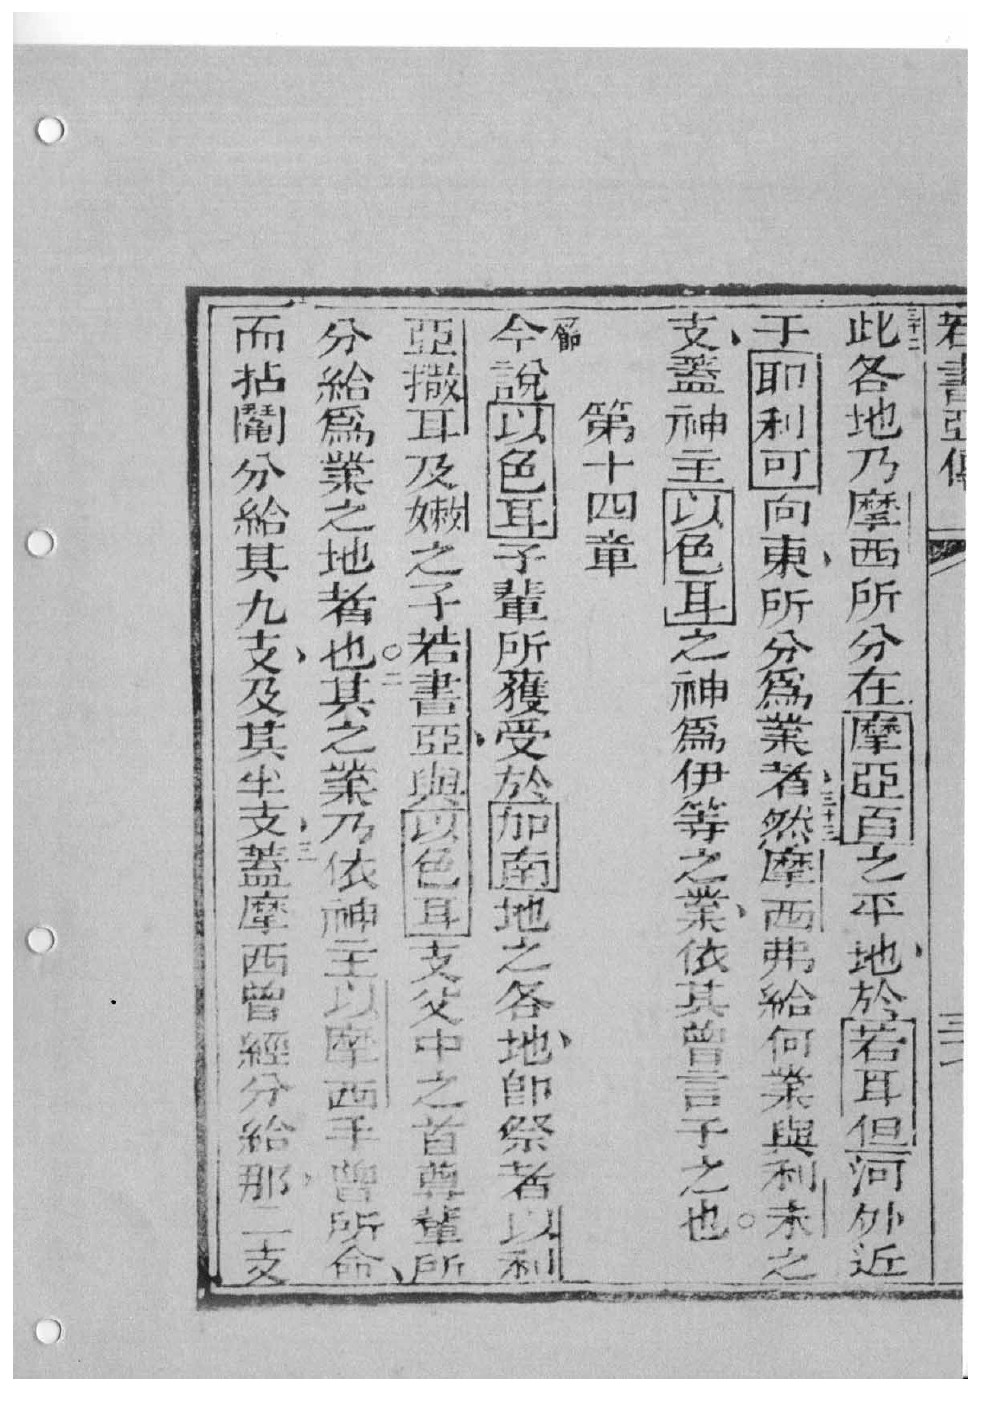 若書亞傳
三十二此各地乃摩西所分在摩亞百之平地於若耳但河外近
于耶利可向東所分爲業者三十三然摩西弗給何業與利未之
支蓋神主以色耳之神爲伊等之業依其曾言于之也
第十四章
一節今說以色耳子輩所獲受於加南地之各地卽祭者以利
亞撒耳及嫩之子若書亞與以色耳支父中之首尊輩所
分給爲業之地者也二其之業乃依神主以摩西手曾所命
而拈鬮分給其九支及其半支三蓋摩西曾經分給那二支